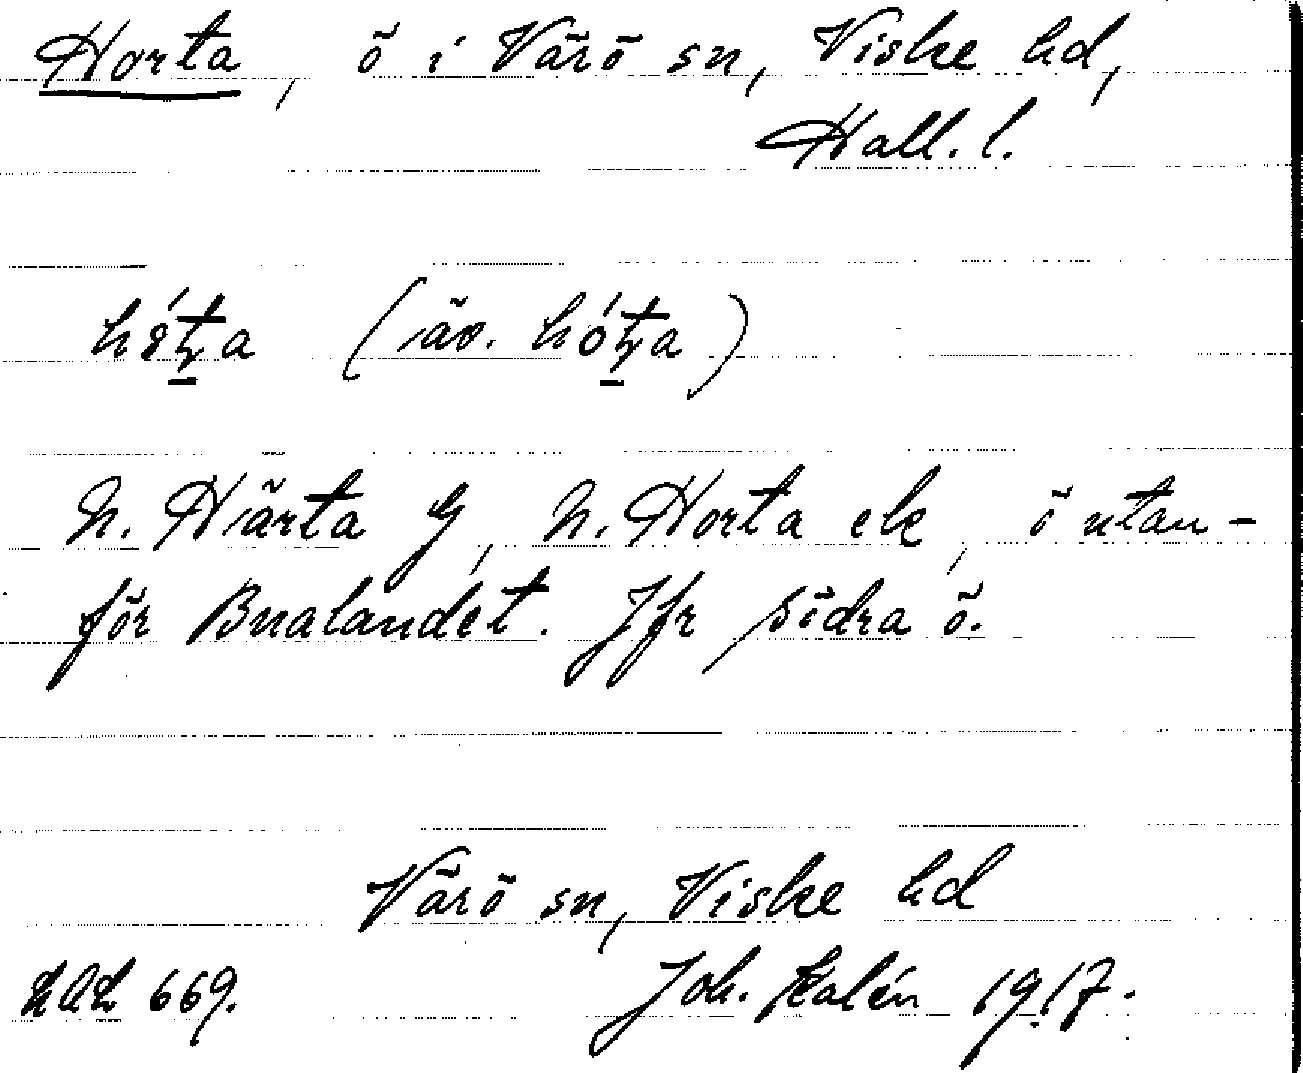 Horta, ö i Värö sn, Viske hd,
Hall. l.
(äv. hóţa)
N. Härta G, N. Horta ek, ö utan-
för Bualandet. Jfr södra ö.
Värö sn, Viske hd
669. Joh. Kalén 1917.